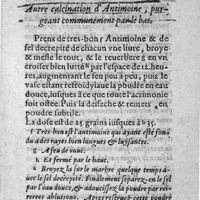 Autre calcination d'Antimoine, pur-
geant communément par le bas.
Prens de tres-bon f Antimoine & de
sel decrepité de chacun vne liure, broye
& mesle le tout, & le reuerbere g en vn
croisetier bien luté h par l'espace de 12. heu-
res, augmentant le feu peu à peu, puis le
vase estant refroidy laue la poudre en eau
douce, iusques à ce que toute l'acrimonie
soit ostée. Puis la desseche & remets en
poudre subtile.
La dose est de 15 grains iusques à 25.
f Tres-bon est l'antimoine qui ayant esté fon-
du a des rayes bien longues & luisantes.
g A feu de roue.
h Et fermé par le haut.
Broyez, la sur le marbre quelque temps a-
uec le sel decrepité. Finalement separez-en le sel
par l'eau douce, & adoucissez la poudre par rei-
terées ablutions. Apres reseichez cette poudre